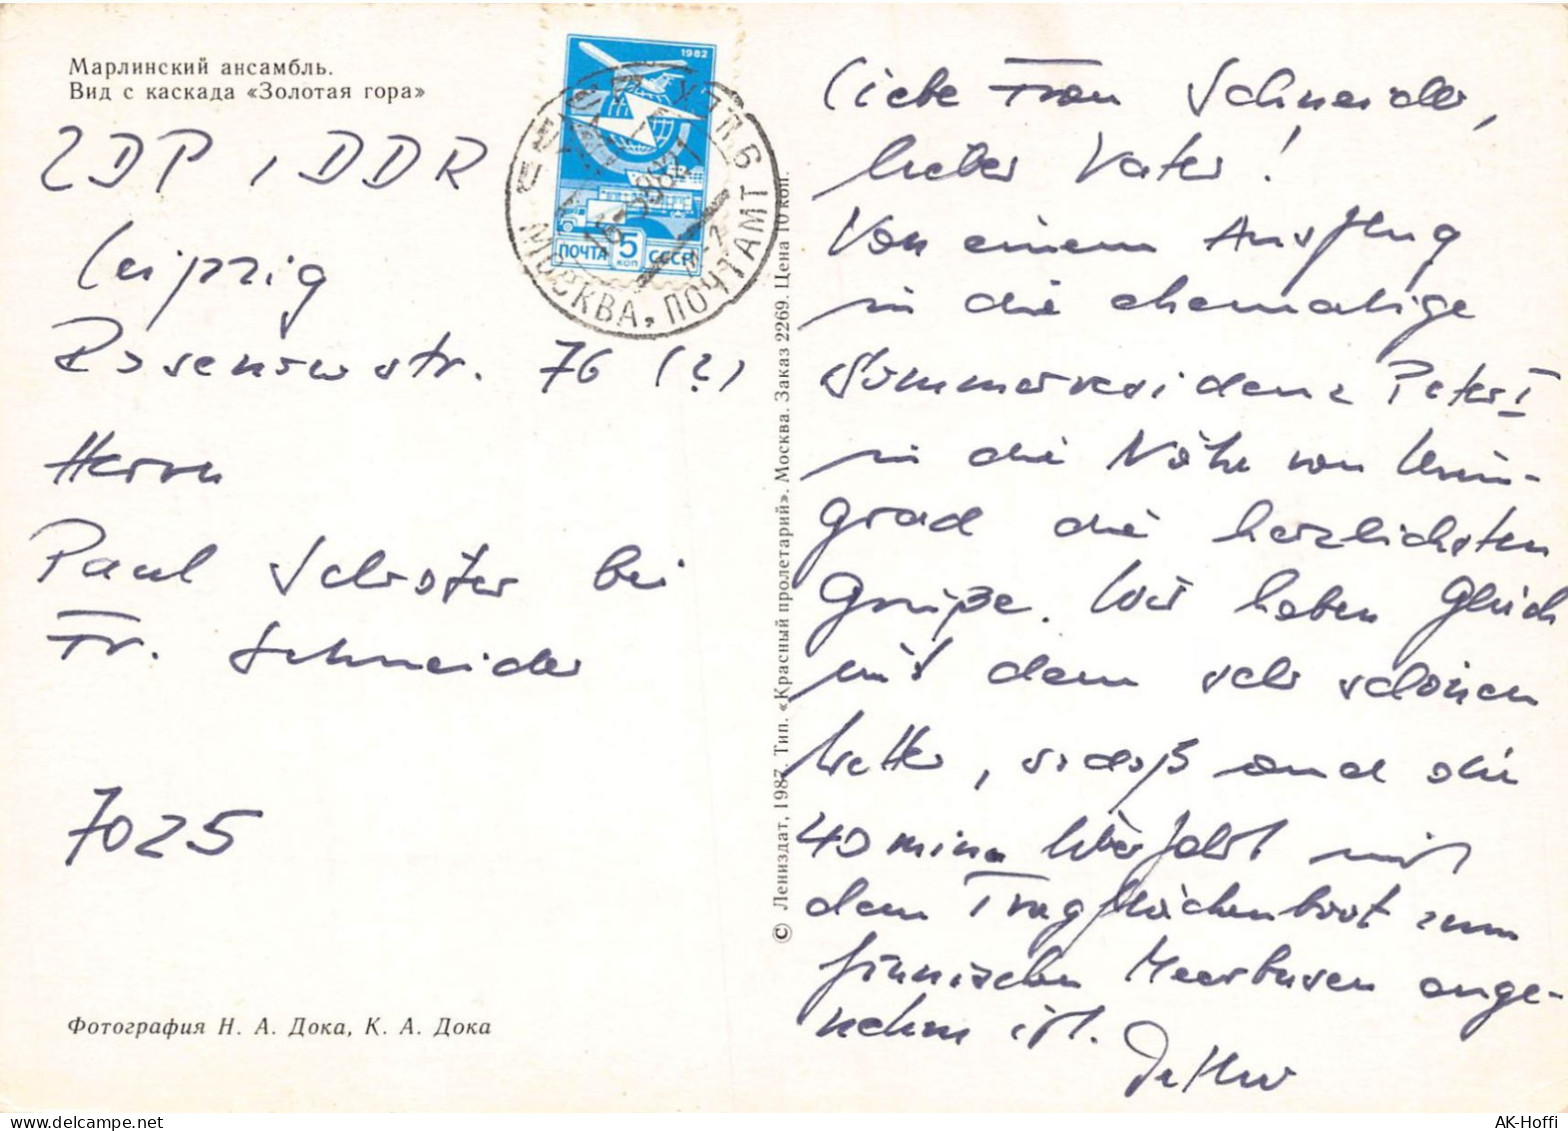 Марлинский ансамбль.
Вид с каскада «Золотая гора»
1982
ПОЧТА 5 КОП СССР
МОСКВА, ПОЧТАМТ
ГДР, DDR
Leipzig
str. 76 (?)
Herrn
Paul Schröter bei
Fr. Schneider
7025
Фотография Н. А. Дока, К. А. Дока
© Лениздат, 1987. Тип. «Красный пролетарий». Москва. Заказ 2269. Цена 10 коп.
Liebe Frau Schneider,
lieber Vater!
Von einem Ausflug
in die ehemalige
Sommerresidenz Peter I
in die Nähe von Lenin-
grad die herzlichsten
Grüße. Wir haben Glück
mit dem sehr schönen
Wetter, sodaß auch die
40 minn Überfahrt mit
dem Tragflächenboot zum
finnischen Meerbusen ange-
nehm ist.
Detlev
AK-Hoffi